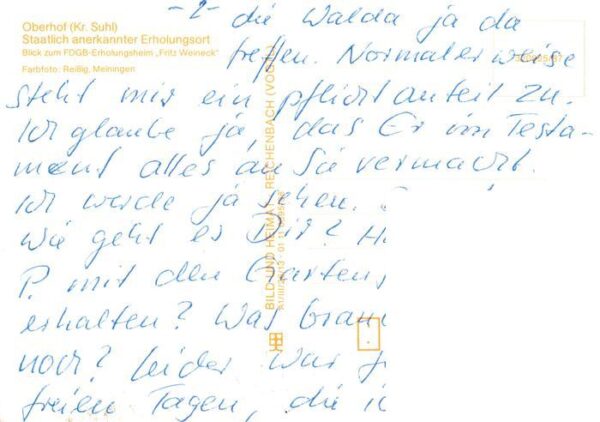 Oberhof (Kr. Suhl)
Staatlich anerkannter Erholungsort
Blick zum FDGB-Erholungsheim „Fritz Weineck"
Farbfoto: Reißig, Meiningen
-2- die Walda ja da
treffen. Normalerweise
steht mir ein pflichtanteil zu.
Ich glaube ja, das Er im Testa-
ment alles an Sie vermacht.
Ich werde ja sehen.
Wie geht es Dir?
P. mit den Garten
erhalten? Was
noch? Leider war
freien Tagen, die
BILD UND HEIMAT REICHENBACH (VOGTL)